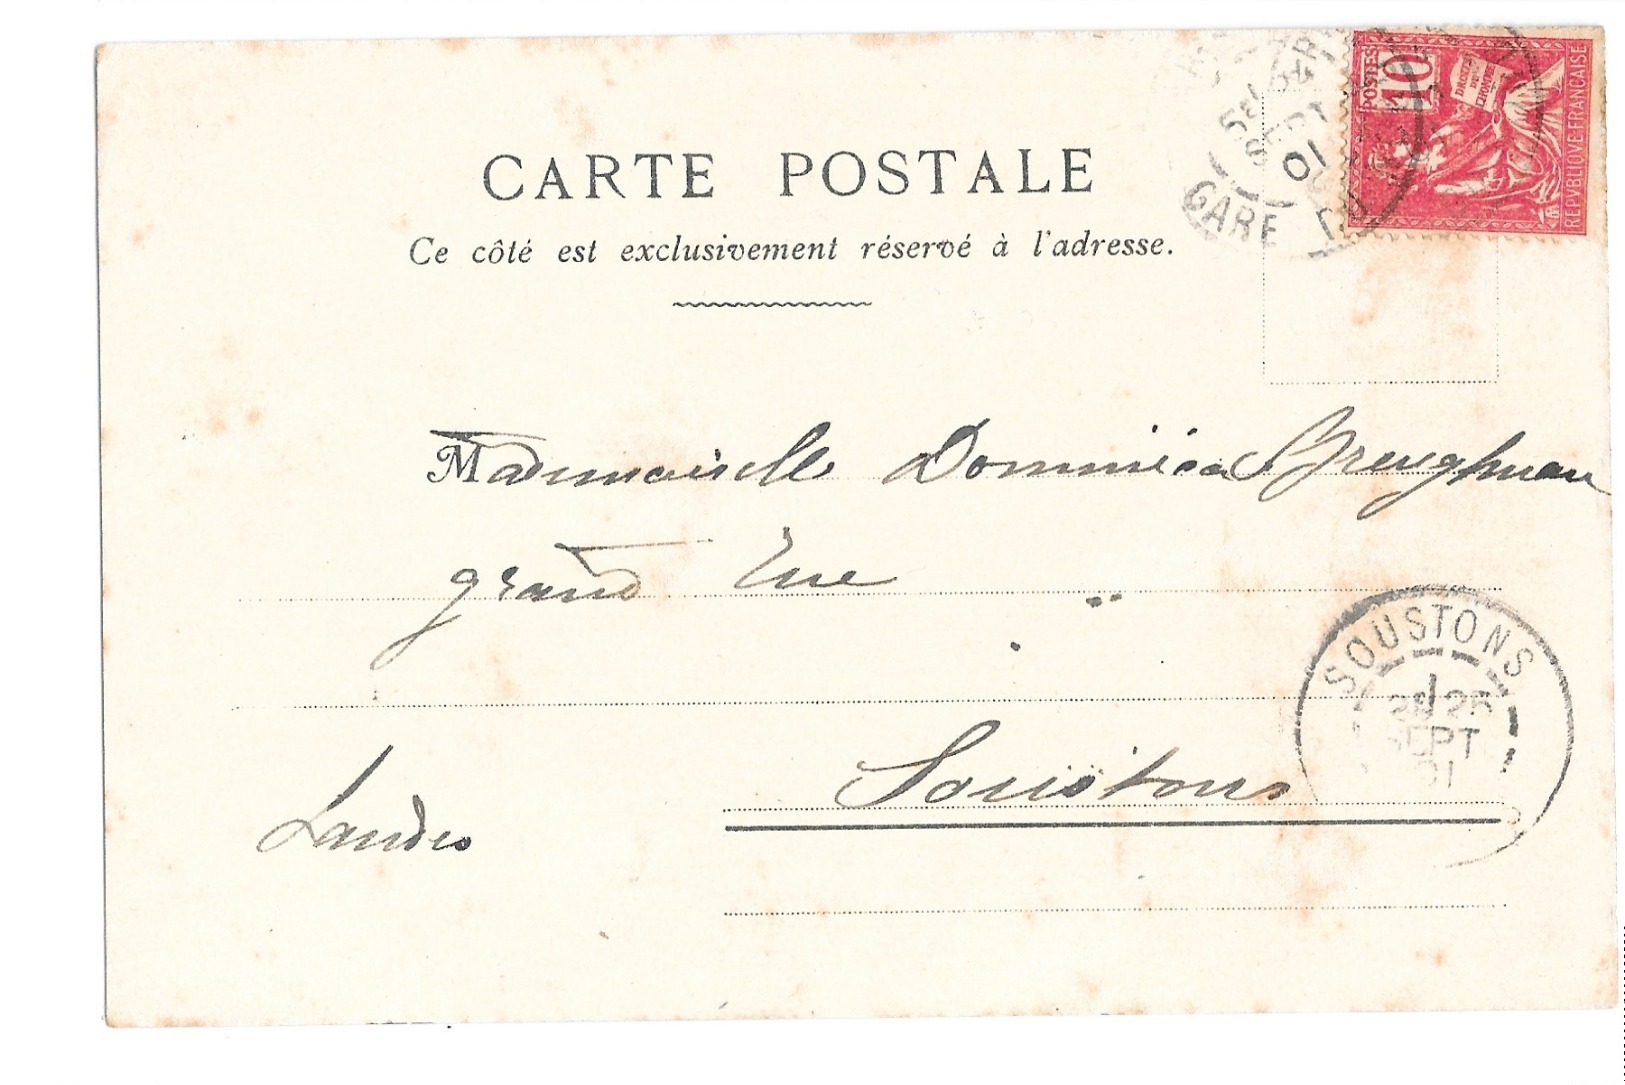 CARTE POSTALE
Ce côté est exclusivement réservé à l'adresse.
POSTES
10
DROITS DE L'HOMME
REPVBLIQVE FRANCAISE
SEPT
01
GARE
Mademoiselle
grand rue
Soustons
Landes
SOUSTONS
25
SEPT
01